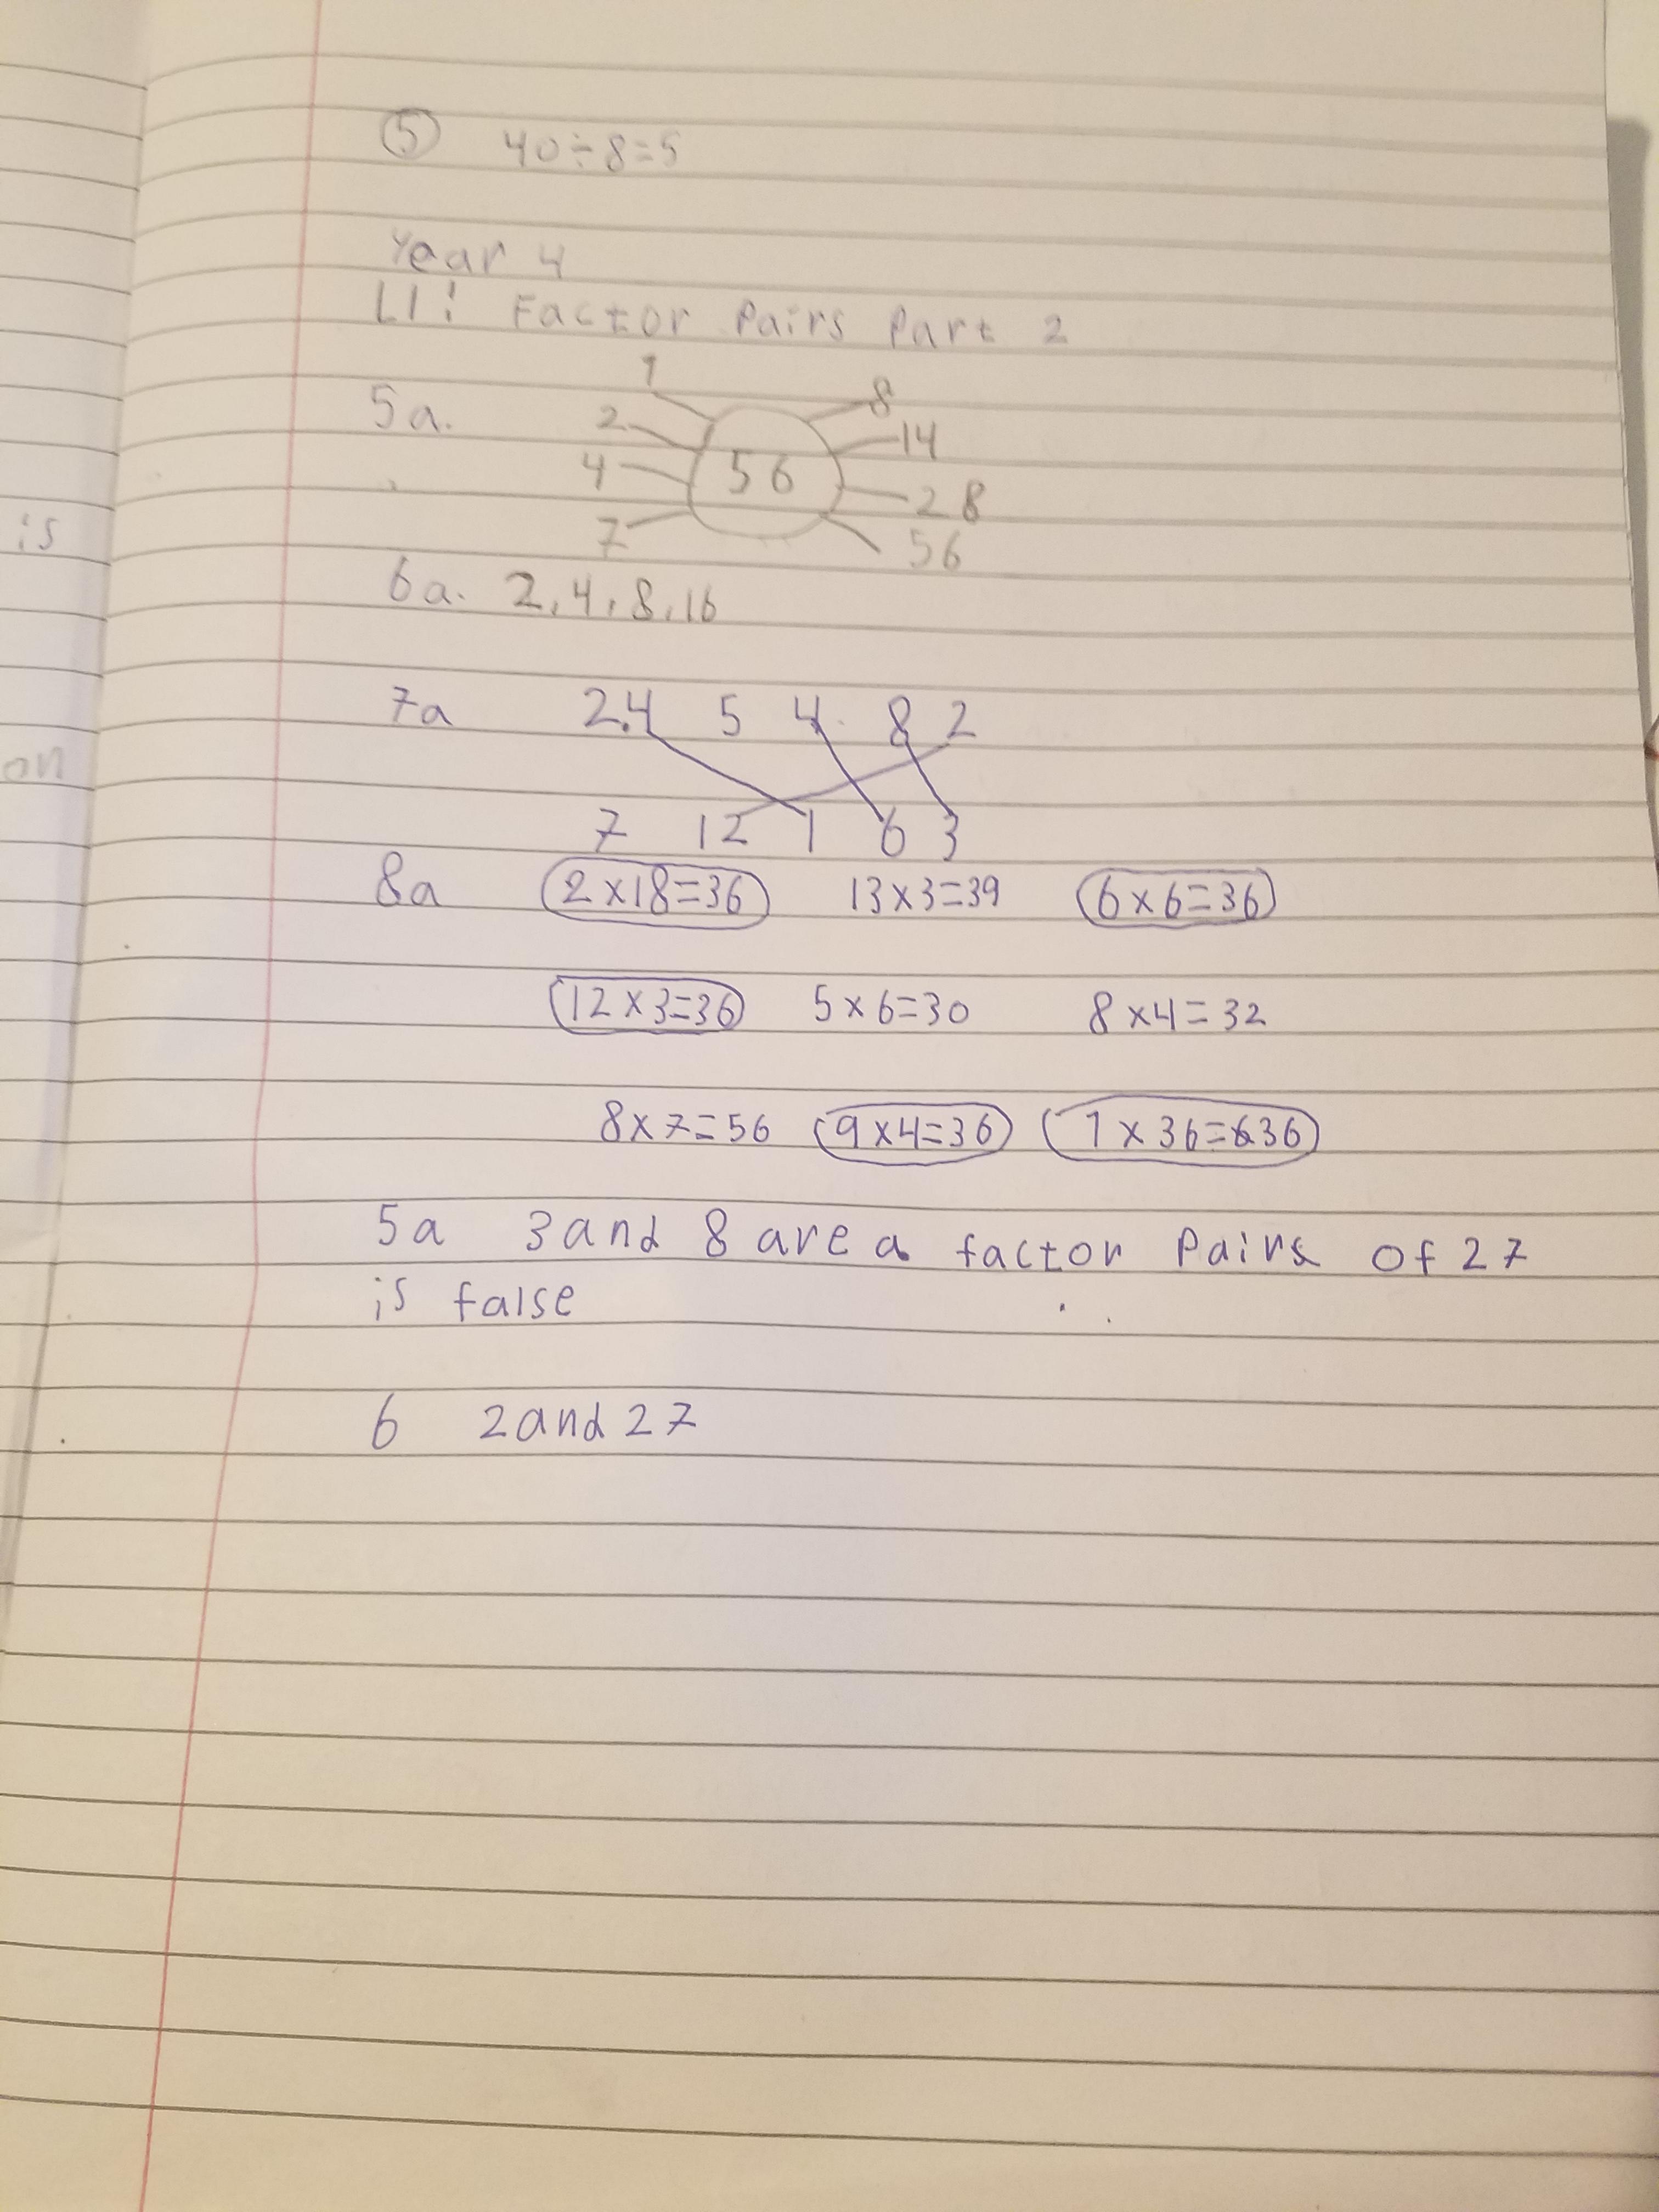 ⑤ 40÷8=5
Year 4
LI: Factor Pairs Part 2
5a.
1 8
2 14
4 56 28
7 56
is
6a. 2,4,8,16
7a 2.4 5 4 8 2
on
7 12 1 6 3
8a 2×18=36 13×3=39 6×6=36
12×3=36 5×6=30 8×4=32
8×7=56 9×4=36 1×36=36
5a 3 and 8 are a factor Pairs of 27
is false
6 2 and 27